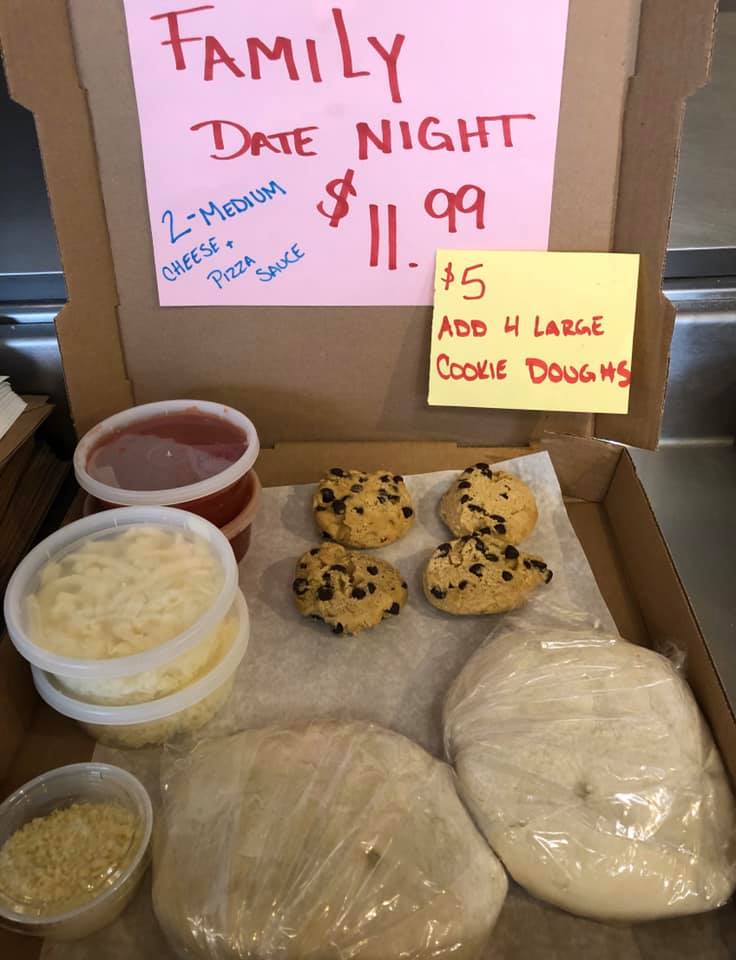 FAMILY
DATE NIGHT
$11.99
2-MEDIUM
CHEESE +
PIZZA SAUCE
$5
ADD 4 LARGE
COOKIE DOUGHS